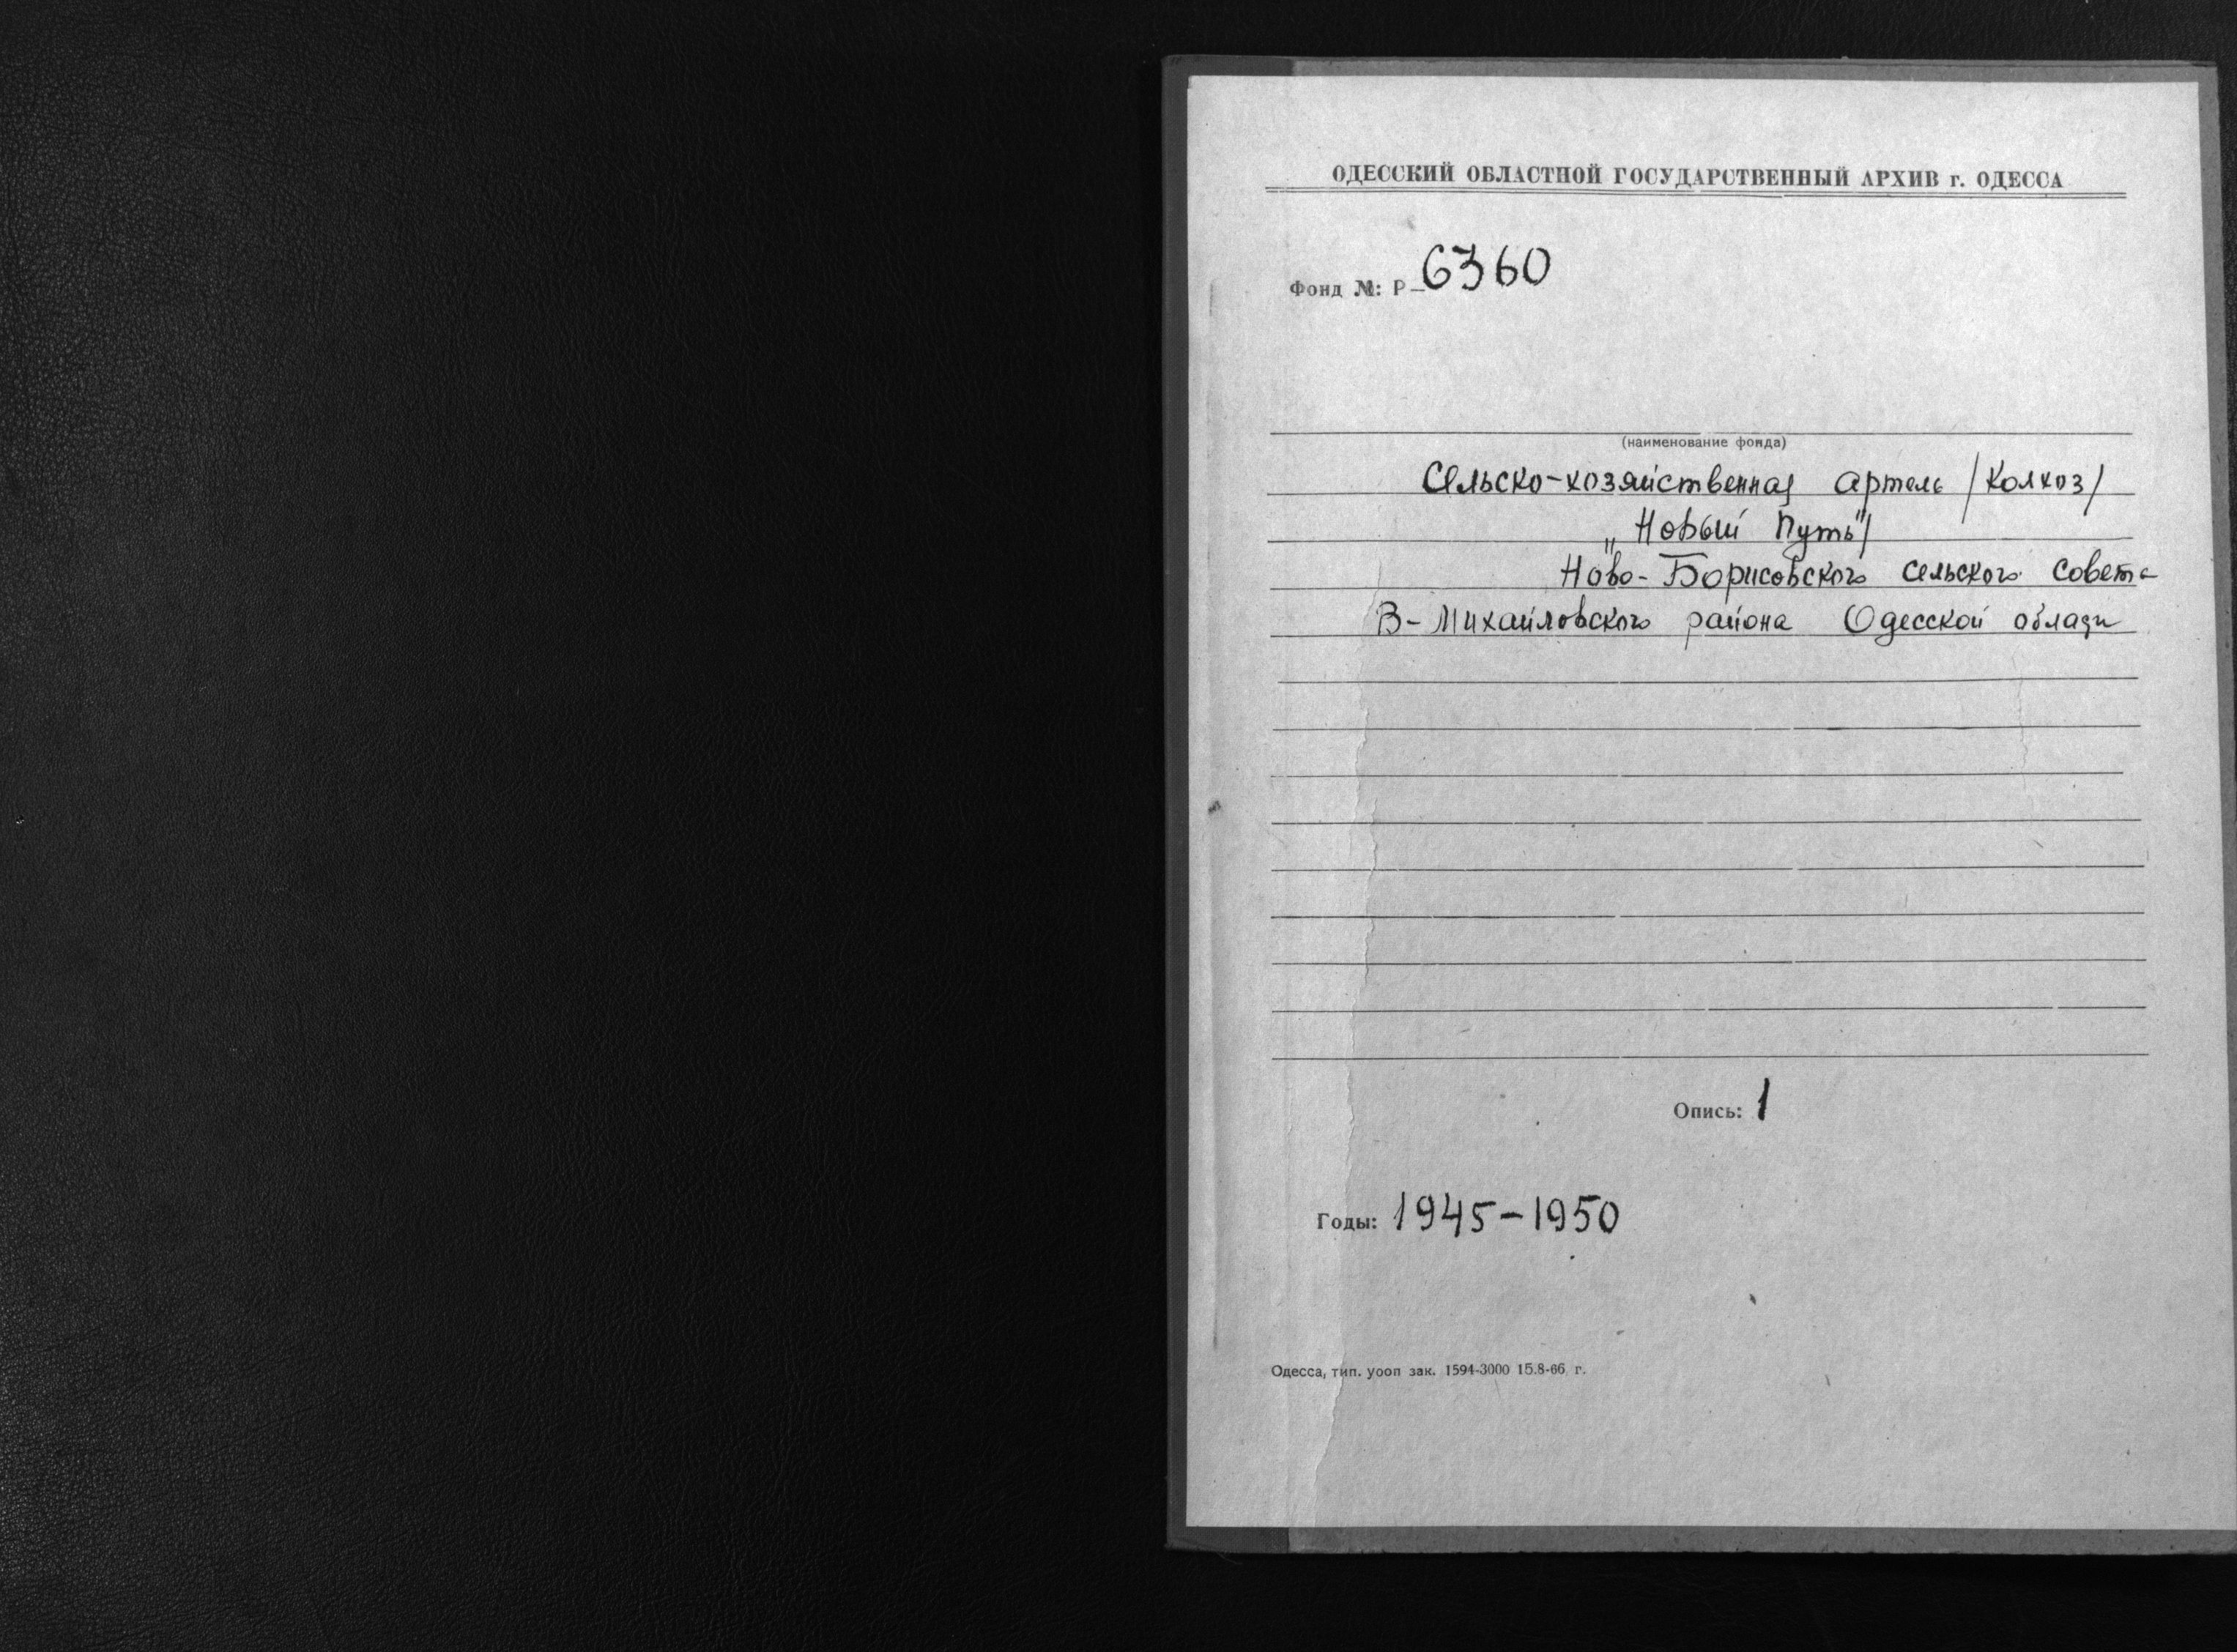 ОДЕССКИЙ ОБЛАСТНОЙ ГОСУДАРСТВЕННЫЙ АРХИВ г. ОДЕССА
Фонд №: Р-6360
(наименование фонда)
Сельско-хозяйственная артель /Колхоз/
„Новый Путь"/
Ново-Борисовского сельского совета
В-Михайловского района Одесской области
Опись: 1
Годы: 1945-1950
Одесса, тип. уооп зак. 1594-3000 15.8-66 г.